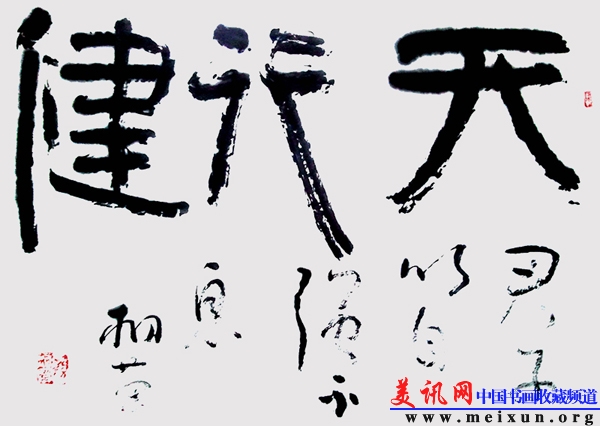 天行健
君子
以自
强不
息
美讯网 中国书画收藏频道
www.meixun.org